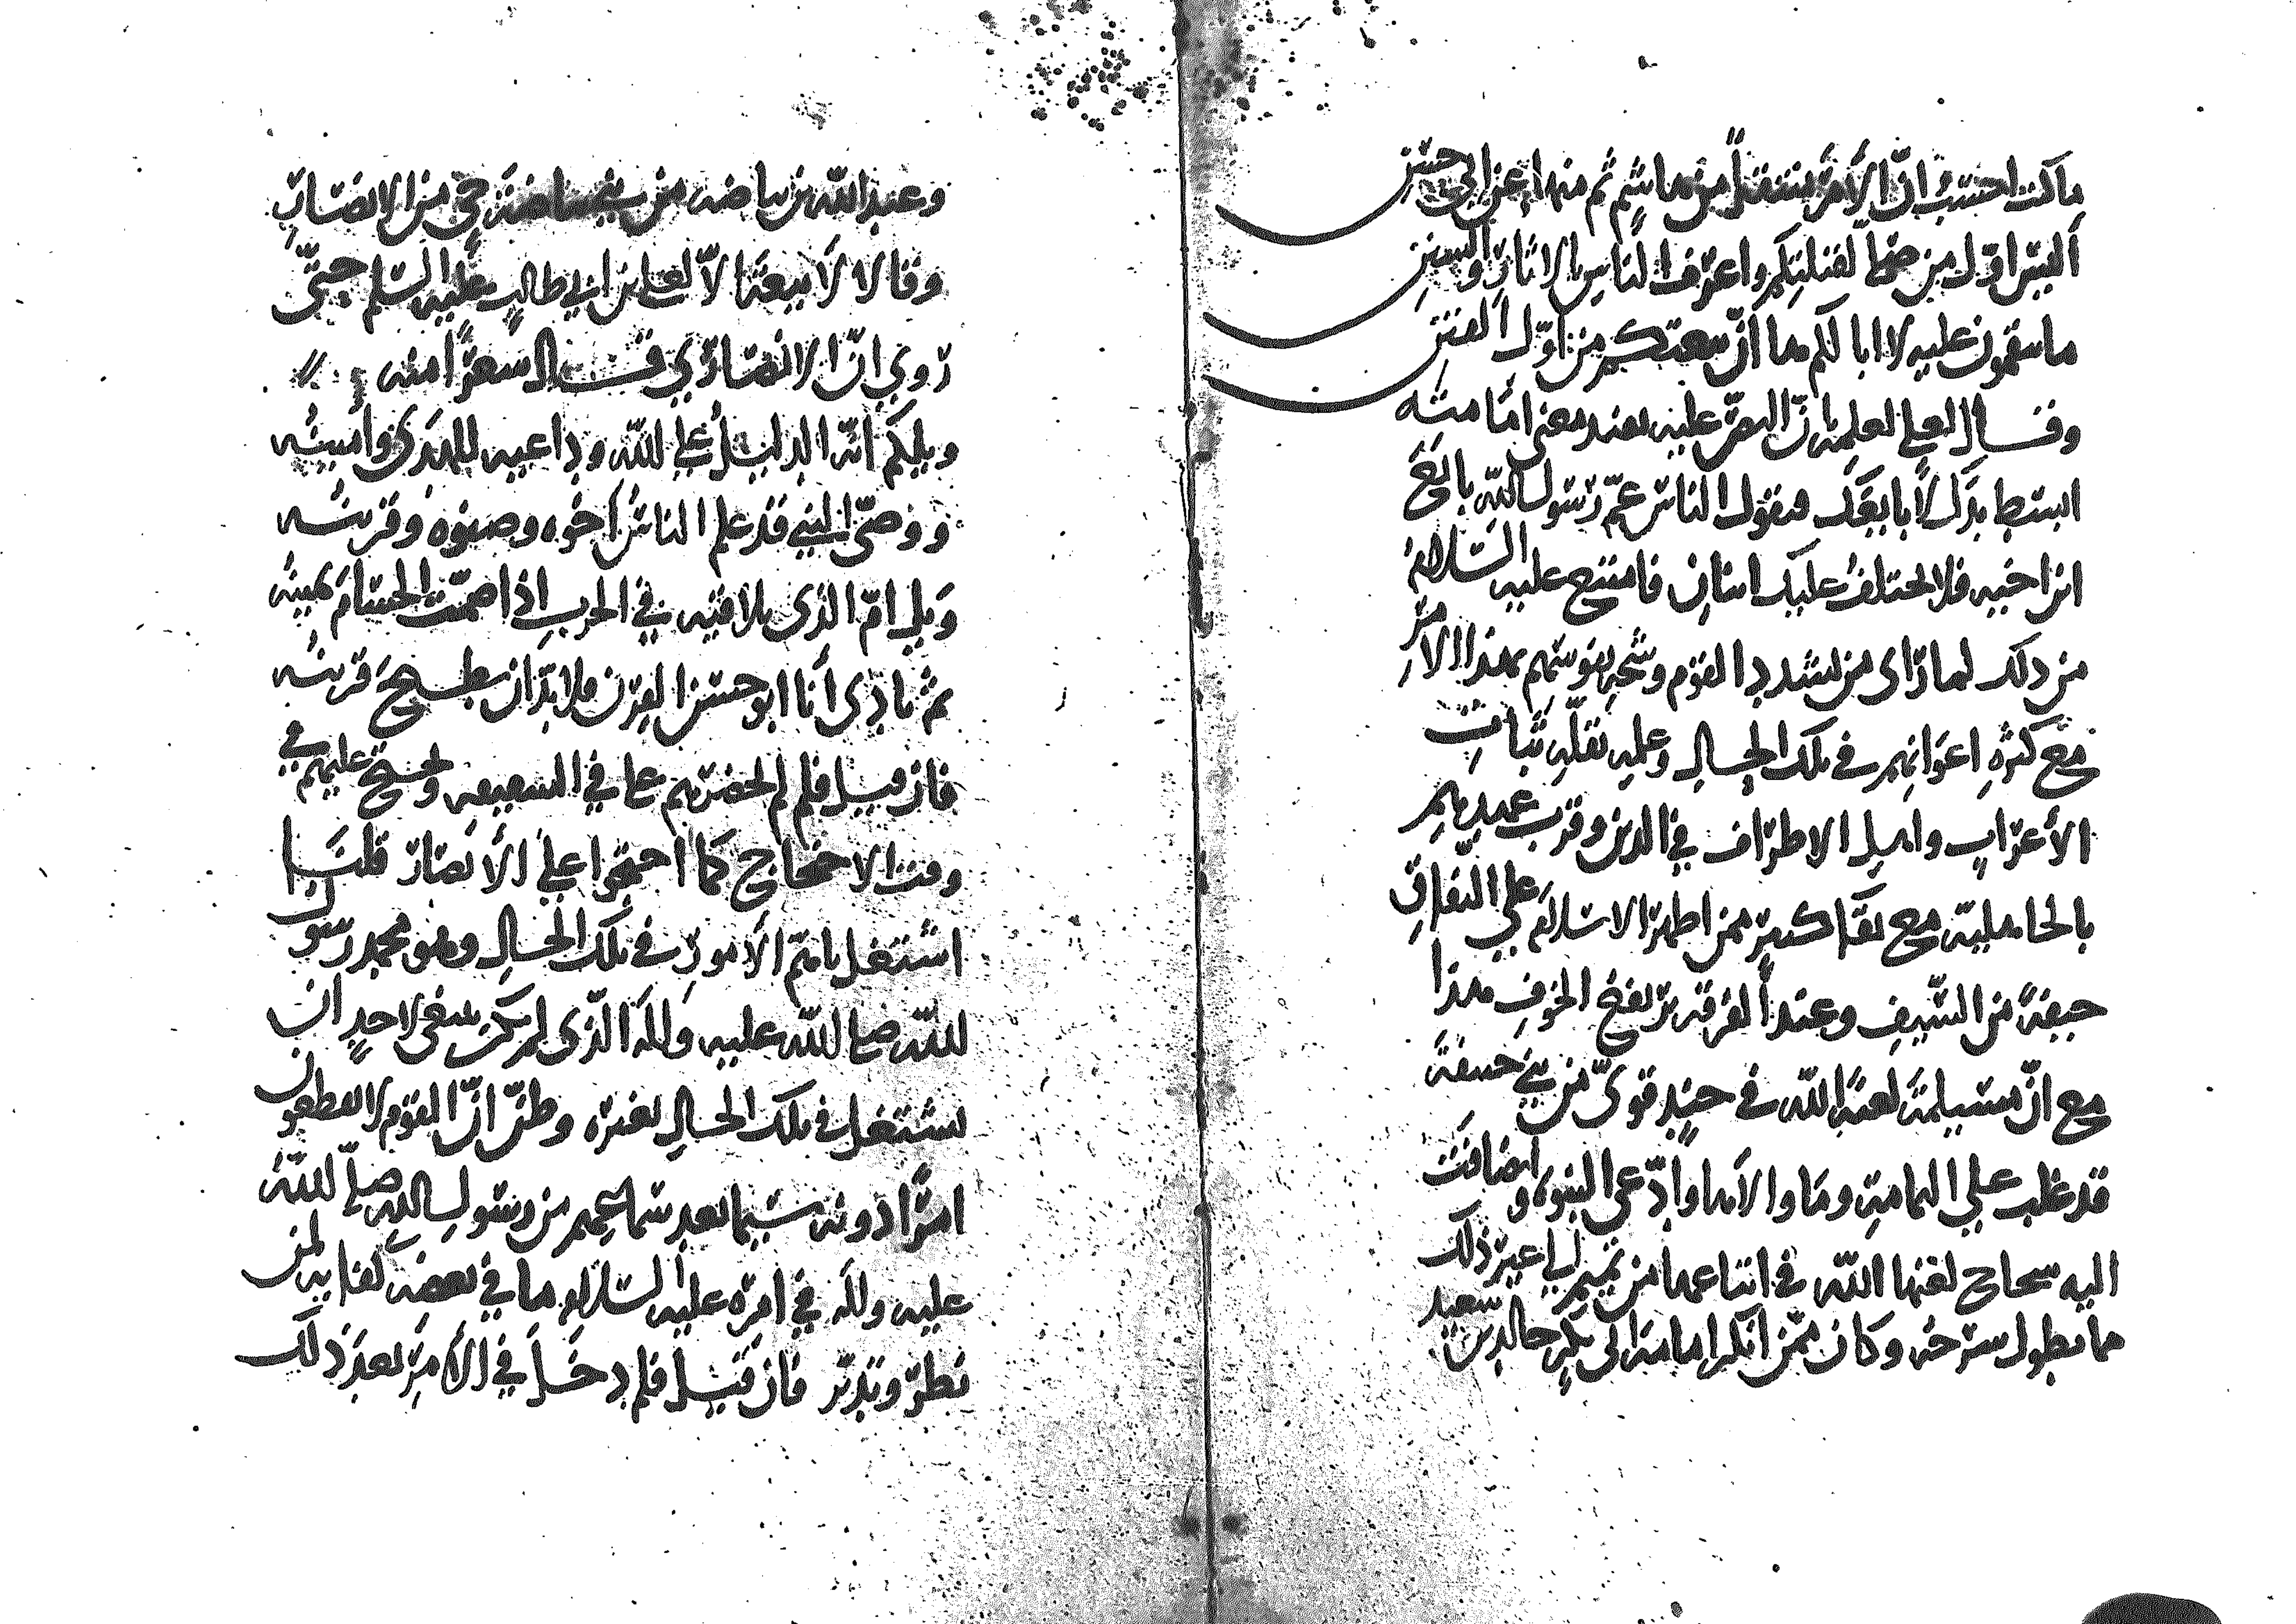 ما كنت احسب انّ الأمر منتقلاً من هاشم ثم منها عن ابي حسن
أليس اوّل من صلى لقبلتكم واعرف الناس بالاثار والسنن
ما تنقمون عليه لا ابا لكم ها انّ بيعتكم من اوّل الفتن
وقال لعلي لعلمه بان النص عليه بعد مضي امامته
ابسط يدك لأبايعك فيقول الناس عمّ رسول الله بايع
ابن اخيه فلا يختلف عليك اثنان فامتنع عليه السلام
من ذلك لما راى من تشدد القوم وشح نفوسهم بهذا الامر
مع كثرة اعوانهم في تلك الحال وعلمه بقلة ثبات
الأعراب واهل الاطراف في الدين وقرب عهدهم
بالجاهلية مع بقاء كثير ممن اظهر الاسلام على النفاق
خيفةً من السيف وعند الفرقة يرتفع الخوف هذا
مع انّ مسيلمة لعنه الله في جند قويّ من بني حنيفة
قد غلب على اليمامة وما والاها وادّعى النبوة وانضافت
اليه سجاح لعنها الله في اتباعها من تميم الى غير ذلك
مما يطول شرحه وكان ممّن انكر امامة ابي بكر خالد بن سعيد
وعبد الله بن بياضه من بني بياضة حي من الانصار
وقالا لا بيعة الاّ لعلي بن ابي طالب عليه السلم حتّى
روي انّ الانصاري قال شعراً منه
ويلكم انّه الدليل على الله وداعيه للهدى وأمينه
ووصيّ النبي قد علم الناس أخوه وصنوه وقرينه
ويل امّ الذي يلاقيه في الحرب اذا ضمّت الحسام يمينه
ثم نادى أنا ابو حسن القرن فلا بدّ ان يطيح قرينه
فان قيل فلم لم يحضرهم علي في السقيفة ويحتج عليهم في
وقت الاحتجاج كما احتجوا على الأنصار قلنا
اشتغل باهم الأمور في تلك الحال وهو محمد رسول
الله صلى الله عليه وآله الذي لم يكن ينبغي لاحدٍ ان
يشتغل في تلك الحال بغيره وظنّ انّ القوم لا يقطعون
امراً دونه سيما بعد سماعهم من رسول الله صلى الله
عليه وآله في امره عليه السلام ما في بعضه كفاية لمن
نظر وتدبر فان قيل فلم دخل في الأمر بعد ذلك